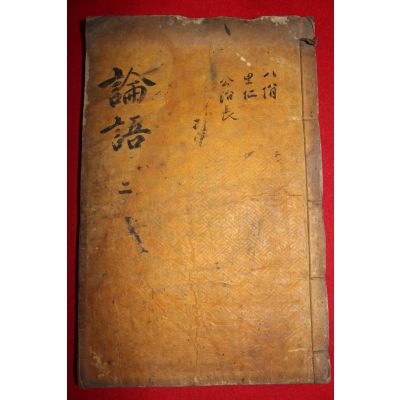 八佾
里仁
公冶長
論語 二